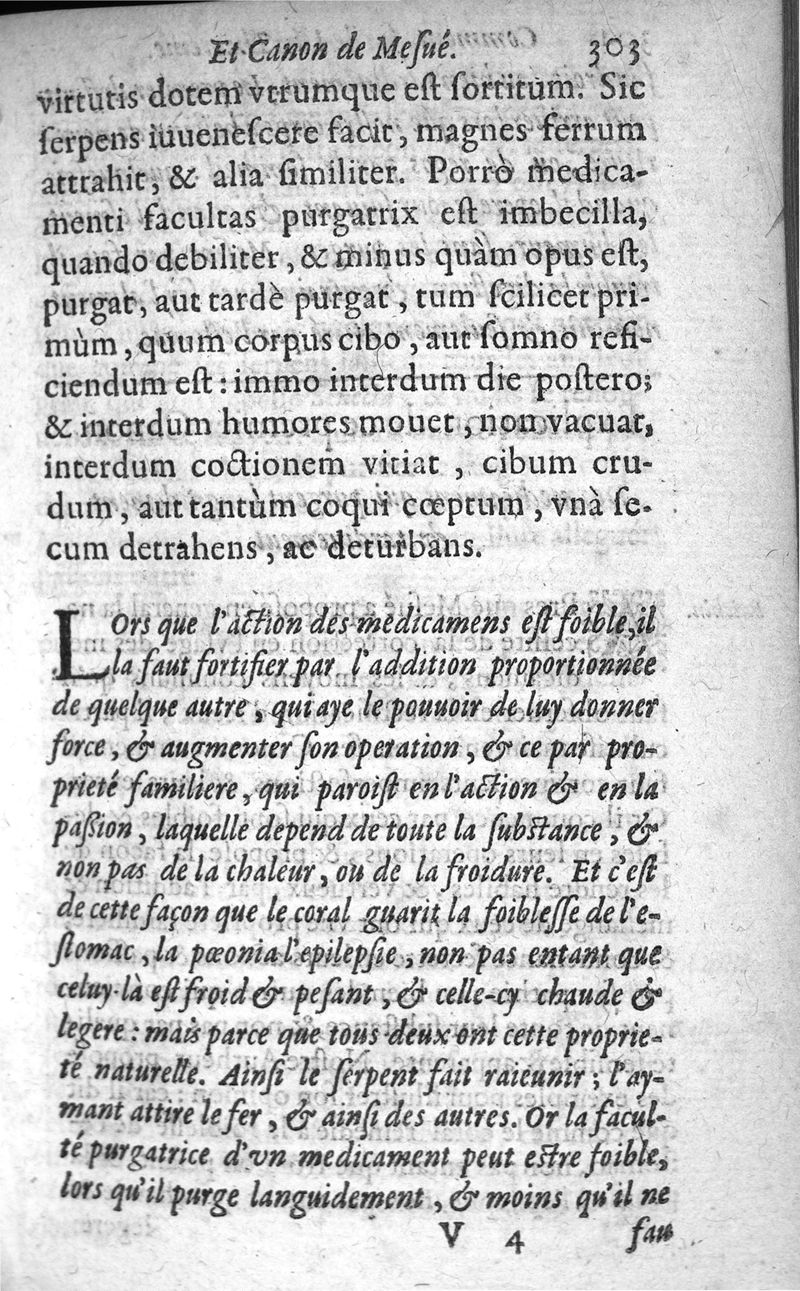 Et Canon de Meſué. 303
virtutis dotem vtrumque eſt ſortitum. Sic
ſerpens iuueneſcere facit, magnes ferrum
attrahit, & alia ſimiliter. Porrò medica-
menti facultas purgatrix eſt imbecilla,
quando debiliter, & minus quàm opus eſt,
purgat, aut tardè purgat, tum ſcilicet pri-
mùm, quum corpus cibo, aut ſomno refi-
ciendum eſt: immo interdum die poſtero;
& interdum humores mouet, non vacuat,
interdum coctionem vitiat, cibum cru-
dum, aut tantùm coqui cœptum, vnà ſe-
cum detrahens, ac deturbans.
LOrs que l'action des medicamens eſt foible, il
la faut fortifier par l'addition proportionnée
de quelque autre, qui aye le pouuoir de luy donner
force, & augmenter ſon operation, & ce par pro-
prieté familiere, qui paroiſt en l'action & en la
paſsion, laquelle depend de toute la ſubſtance, &
non pas de la chaleur, ou de la froidure. Et c'eſt
de cette façon que le coral guarit la foibleſſe de l'e-
ſtomac, la pœonia l'epilepſie, non pas entant que
celuy-là eſt froid & peſant, & celle-cy chaude &
legere: mais parce que tous deux ont cette proprie-
té naturelle. Ainſi le ſerpent fait raieunir; l'ay-
mant attire le fer, & ainſi des autres. Or la facul-
té purgatrice d'vn medicament peut eſtre foible,
lors qu'il purge languidement, & moins qu'il ne
V 4 fau